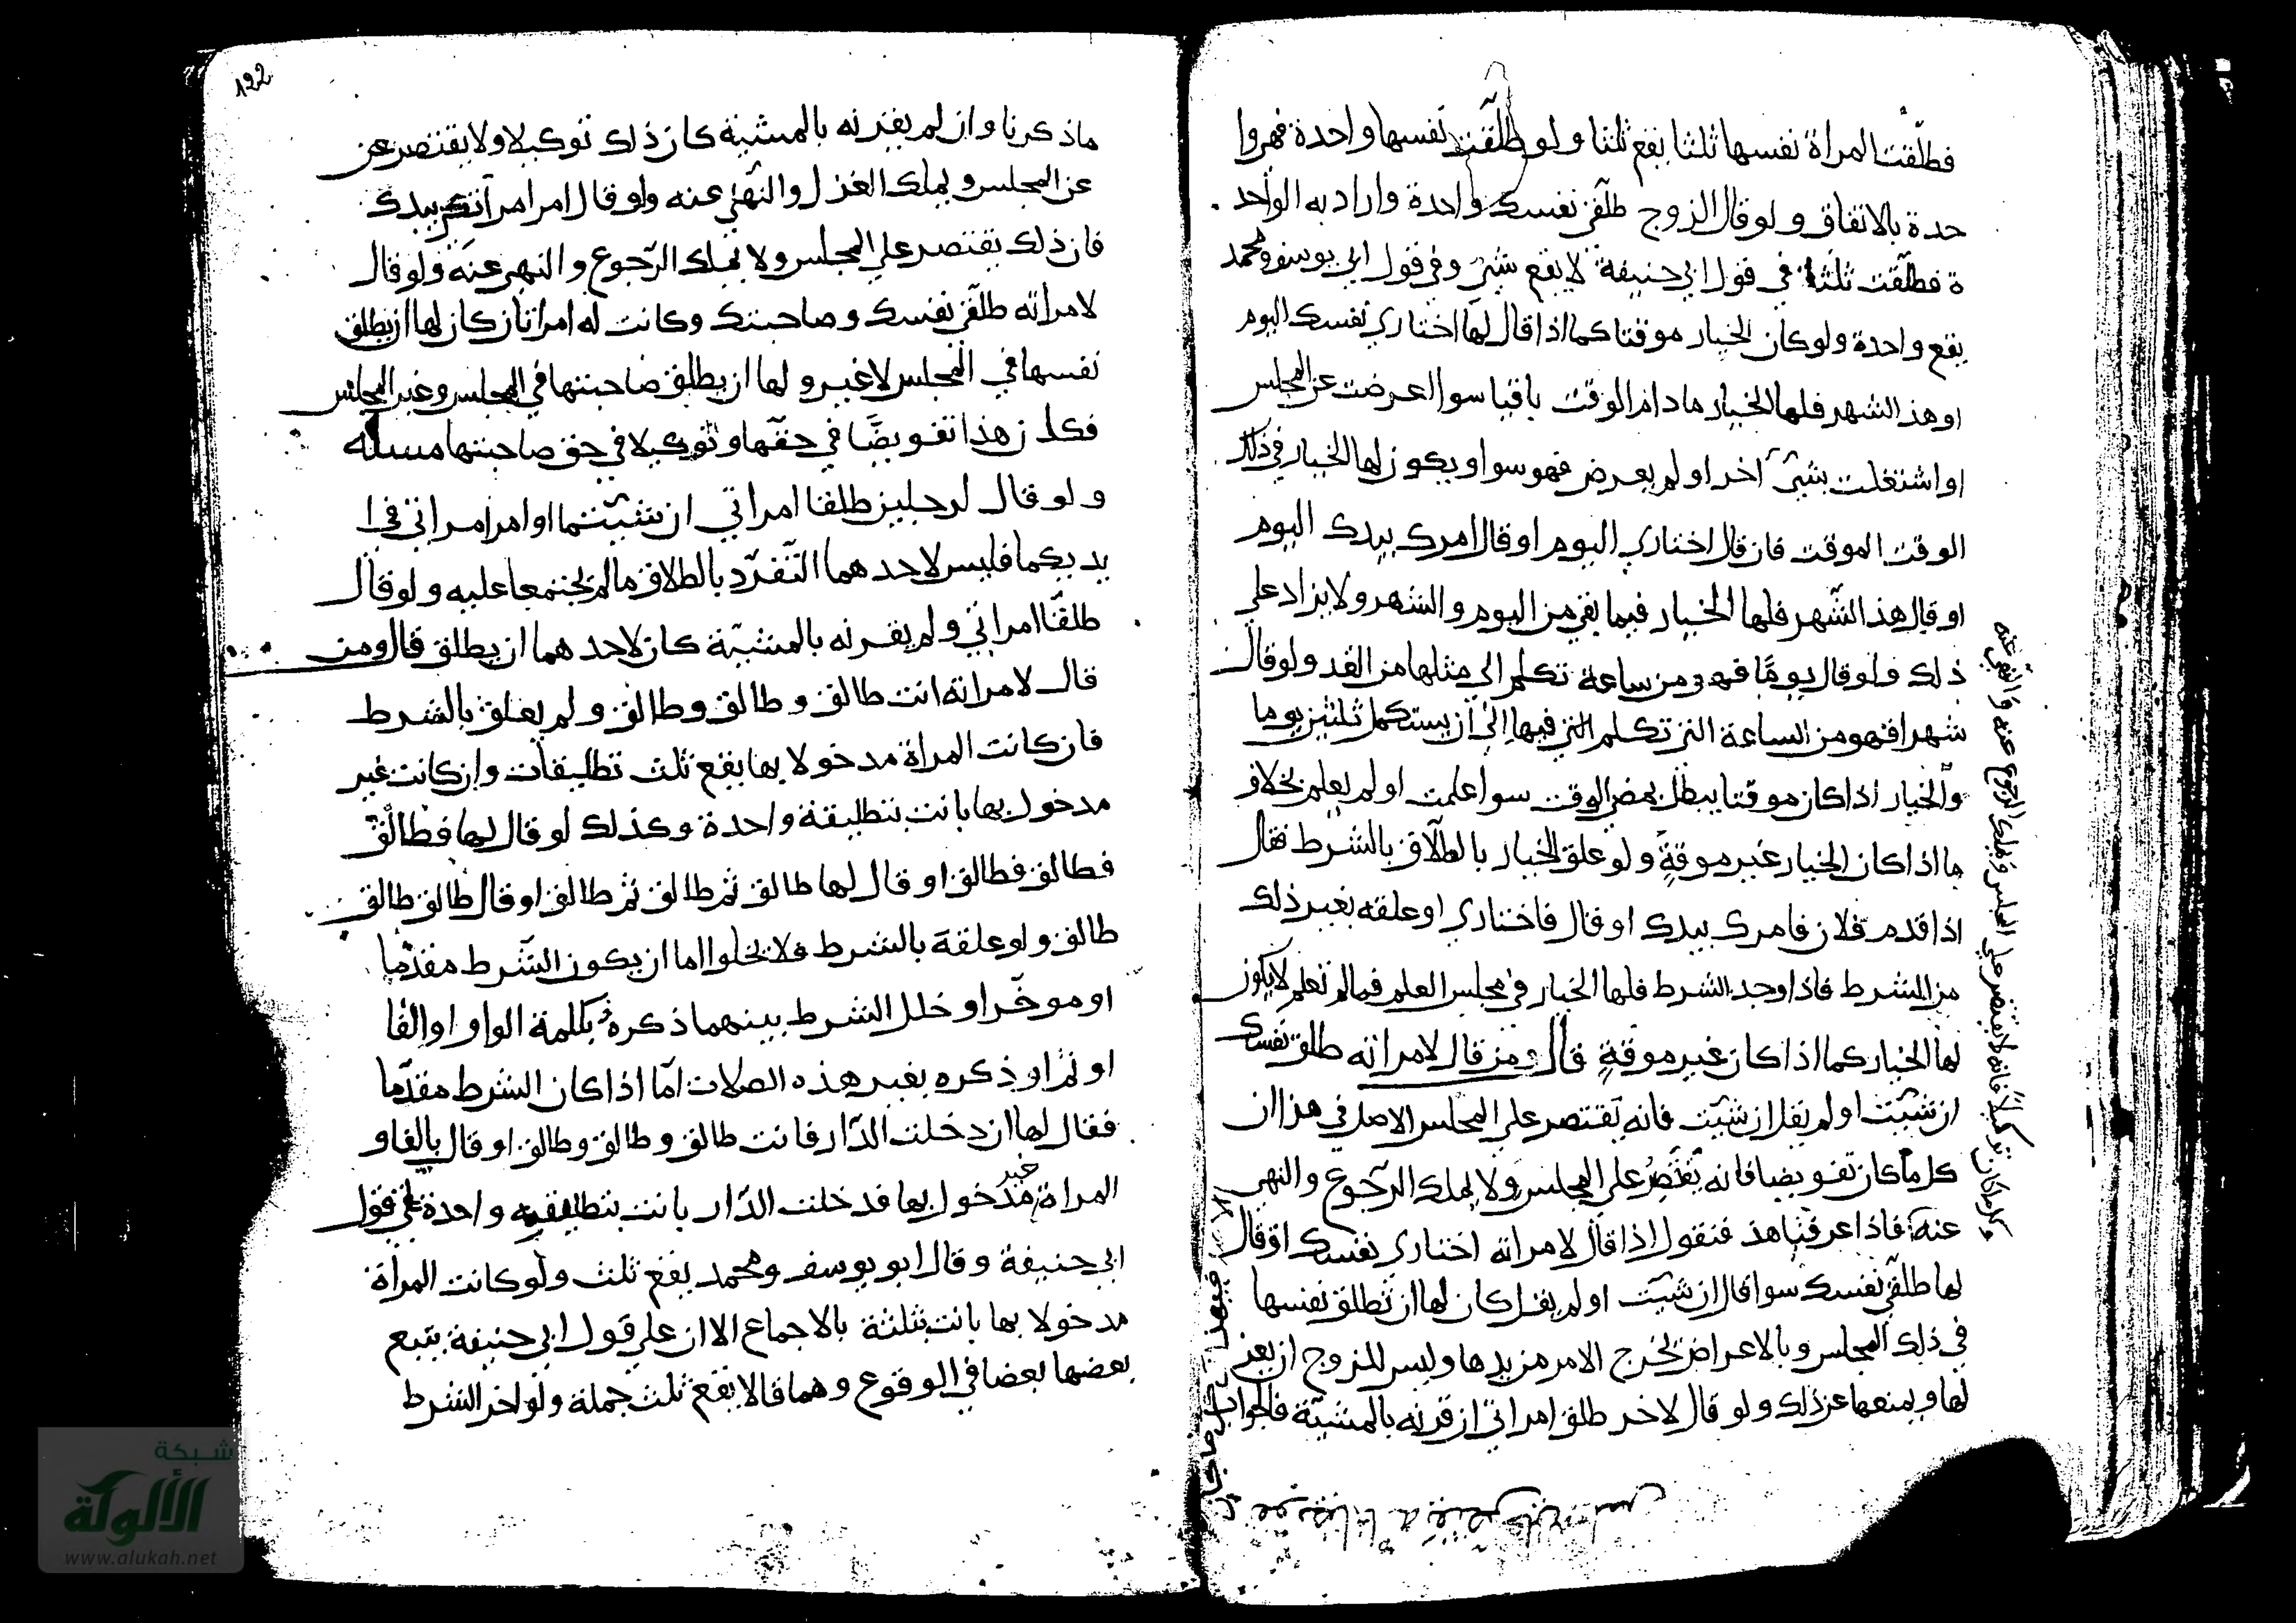 فطلّقت المراة نفسها ثلثا يقع ثلثا ولو طلّقت نفسها واحدة فهروا
حدة بالاتفاق ولو قال الزوج طلّقي نفسك واحدة واراد به الواحد
ة فطلّقت ثلثا في قول ابي حنيفة لا يقع شيء وفي قول ابي يوسف ومحمد
يقع واحدة ولو كان الخيار موقتا كما اذا قال لها اختاري نفسك اليوم
او هذ الشهر فلها الخيار ما دام الوقت باقيا سوا اعرضت عن المجلس
او اشتغلت بشيء اخر او لم يعرض فهو سوا ويكون لها الخيار في ذلك
الوقت الموقت فان قال اختاري اليوم او قال امرك بيدك اليوم
او قال هذ الشّهر فلها الخيار فيما بقي من اليوم والشهر ولا يزاد علي
ذلك ولو قال يومًا فهو من ساعة تكلم الي مثلها من الغد ولو قال
شهرا فهو من الساعة التي تكلم التي فيها الي ان يستكمل ثلثين يوما
والخيار اذا كان موقتا يبطل بمضي الوقت سوا علمت او لم يعلم بخلاف
ما اذا كان الخيار غير موقةٍ ولو علق الخيار بالطلاق بالشرط فقال
اذا قدم فلان فامرك بيدك او قال فاختاري او علقه بغير ذلك
من الشرط فاذا وجد الشرط فلها الخيار في مجلس العلم فما لم تعلم لا يكون
لها الخيار كما اذا كان غير موقةٍ قال ومن قال لامراته طلق نفسك
ان شئت او لم يقل ان شئت فانه يقتصر علي المجلس الاصل في هذا ان
كل ما كان تفويضا فانه يقتصر علي المجلس ولا يملك الرّجوع والنهي
عنه فاذا عرفنا هذ فنقول اذا قال لامراته اختاري نفسك او قال
لها طلّقي نفسك سوا قال ان شئت او لم يقل كان لها ان تطلق نفسها
في ذلك المجلس وبالاعراض يخرج الامر من يدها وليس للزوج ان
لها ويمنعها عن ذلك ولو قال لاخر طلق امراتي ان قرنه بالمشيّة فالجواب
وكل ما كان توكيلاً فانه لا يقتصر علي المجلس ويملك الرجوع عنه والنهي عنه
122
ماذكرنا وان لم يقرنه بالمشية كان ذلك توكيلا ولا يقتصر عن
عن المجلس ويملك العزل والنّهي عنه ولو قال امر امراتي بيدك
فان ذلك يقتصر علي المجلس ولا يملك الرّجوع والنهي عنه ولو قال
لامراته طلّقي نفسك وصاحبتك وكانت له امراتان كان لها ان يطلق
نفسها في المجلس لاغير ولها ان يطلق صاحبتها في المجلس وغير المجلس
فكان هذا تفويضًا في حقّها وتوكيلا في حق صاحبتها مسلة
ولو قال لرجلين طلقا امراتي ان شيّتما او امر امراتي في ا
يديكما فليس لاحدهما التّفرّد بالطلاق ما لم يجتمعا عليه ولو قال
طلقا امراتي ولم يقرنه بالمشيّة كان لاحدهما ان يطلق قال ومن
قال لامراته انت طالق وطالق وطالق ولم يعلق بالشرط
فان كانت المراة مدخولا بها يقع ثلث تطليقات وان كانت غير
مدخول بها بانت بتطليقة واحدة وكذلك لو قال لها فطالق
فطالق فطالق او قال لها طالق ثم طالق ثم طالق او قال طالق طالق
طالق ولو علقة بالشرط فلا يخلوا اما ان يكون الشّرط مقدّما
او موخّرا وخلل الشرط بينهما ذكره بكلمة الواو او الفا
او ثم او ذكره بغير هذه الصلات امّا اذا كان الشرط مقدّما
فقال لها ان دخلت الدّار فانت طالق وطالق وطالق او قال بالفا و
المراة غير مدخول بها فدخلت الدّار بانت بتطليقة واحدة في قول
ابي حنيفة وقال ابو يوسف ومحمد يقع ثلث ولو كانت المراة
مدخولا بها بانت بثلثة بالاجماع الا ان علي قول ابي حنيفة يتبع
بعضها بعضا في الوقوع وهما قالا يقع ثلث جملة ولو اخر الشرط
شبكة
الألوكة
www.alukah.net